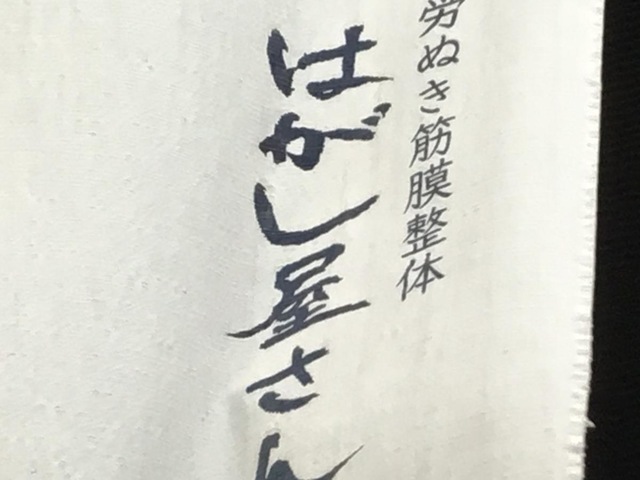 労ぬき筋膜整体
はがし屋さん